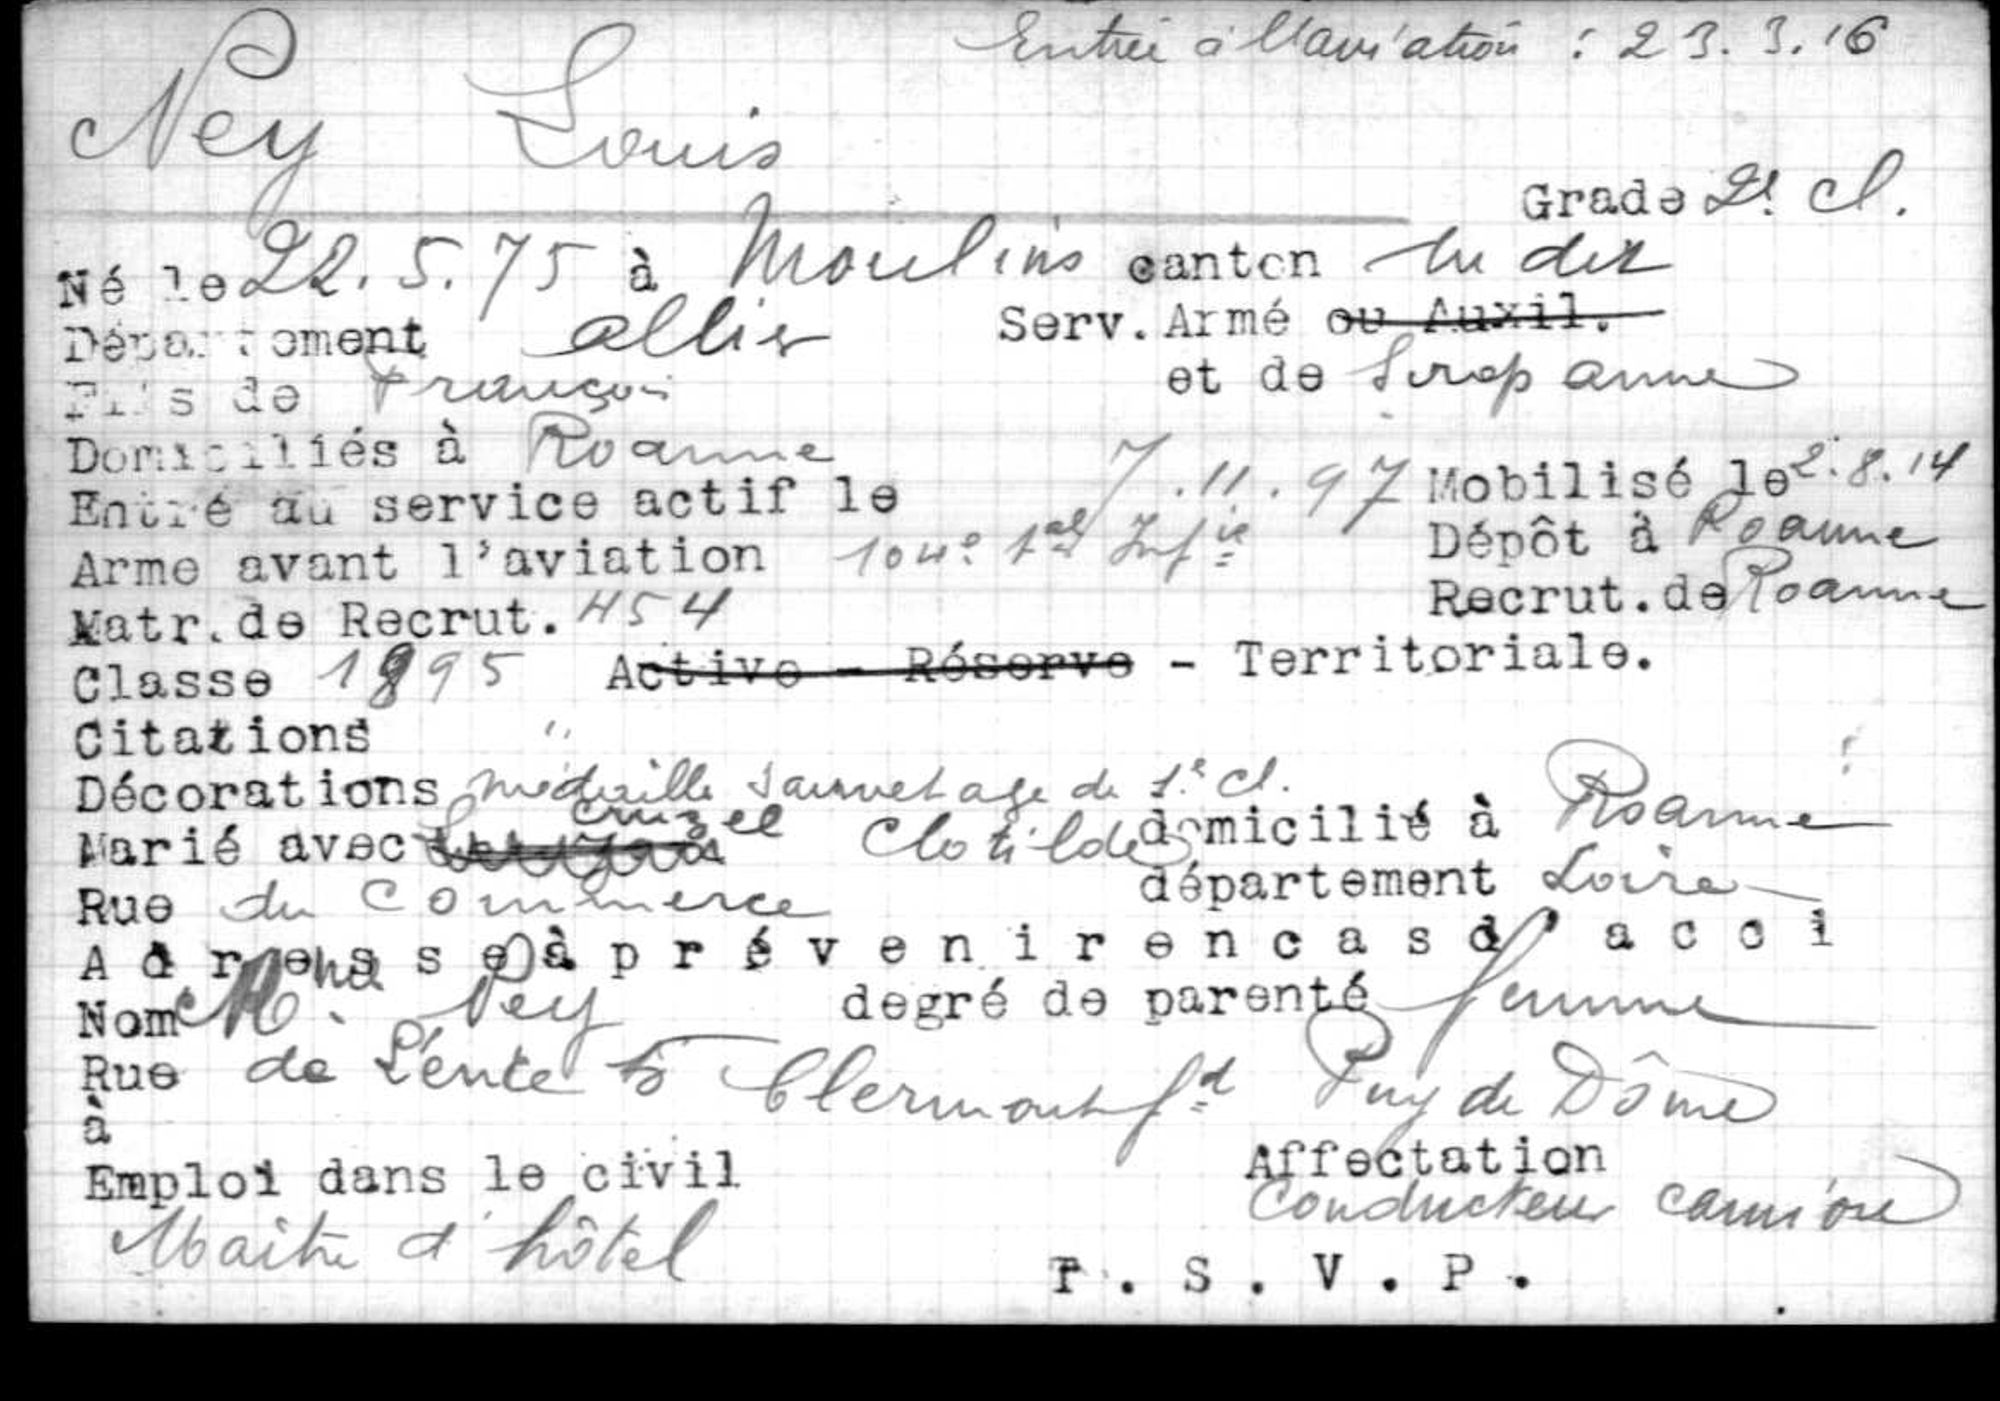 Entrée à l'aviation : 23.3.16
Ney Louis
Grade 2e cl.
Né le 22.5.75 à Moulins canton du dit
Département Allier Serv. Armé ou Auxil.
Fils de François et de Serop anne
Domiciliés à Roanne
Entré au service actif le 7.11.97 Mobilisé le 2.8.14
Arme avant l'aviation 104e tal Infie Dépôt à Roanne
Matr. de Recrut. 454 Recrut. de Roanne
Classe 1895 Active - Réserve - Territoriale.
Citations "
Décorations médaille sauvetage de 1e cl.
Marié avec Cruzel Clotilde domicilié à Roanne
Rue du Commerce département Loire
Adresse à prévenir en cas d'acci
Nom Me Ney degré de parenté femme
Rue de L'ente 5 Clermont fd Puy de Dôme
à
Emploi dans le civil Affectation
Maître d'hôtel Conducteur camion
T.S.V.P.